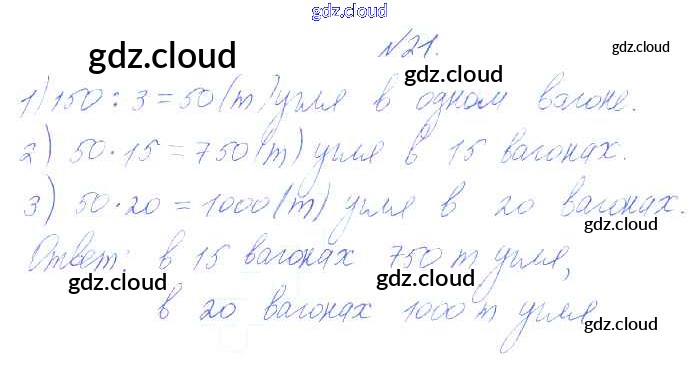 gdz.cloud
№21.
gdz.cloud gdz.cloud
1) 150 : 3 = 50 (т) угля в одном вагоне.
gdz.cloud gdz.cloud
2) 50 · 15 = 750 (т) угля в 15 вагонах.
3) 50 · 20 = 1000 (т) угля в 20 вагонах.
gdz.cloud
Ответ: в 15 вагонах 750 т угля,
gdz.cloud gdz.cloud
в 20 вагонах 1000 т угля
gdz.cloud